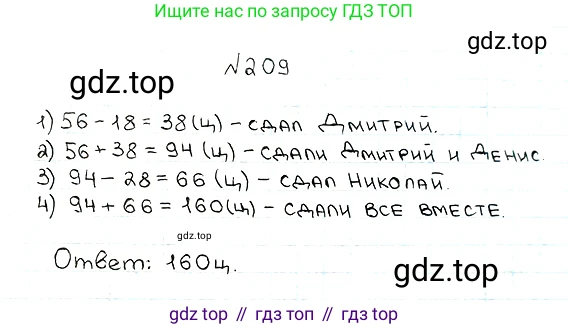 Ищите нас по запросу ГДЗ ТОП
gdz.top
№209
gdz.top
1) 56 - 18 = 38 (ц) - сдал Дмитрий.
2) 56 + 38 = 94 (ц) - сдали Дмитрий и Денис.
3) 94 - 28 = 66 (ц) - сдал Николай.
4) 94 + 66 = 160 (ц) - сдали все вместе.
gdz.top
Ответ: 160 ц.
gdz.top
gdz top // гдз топ // гдз.топ // gdz.top